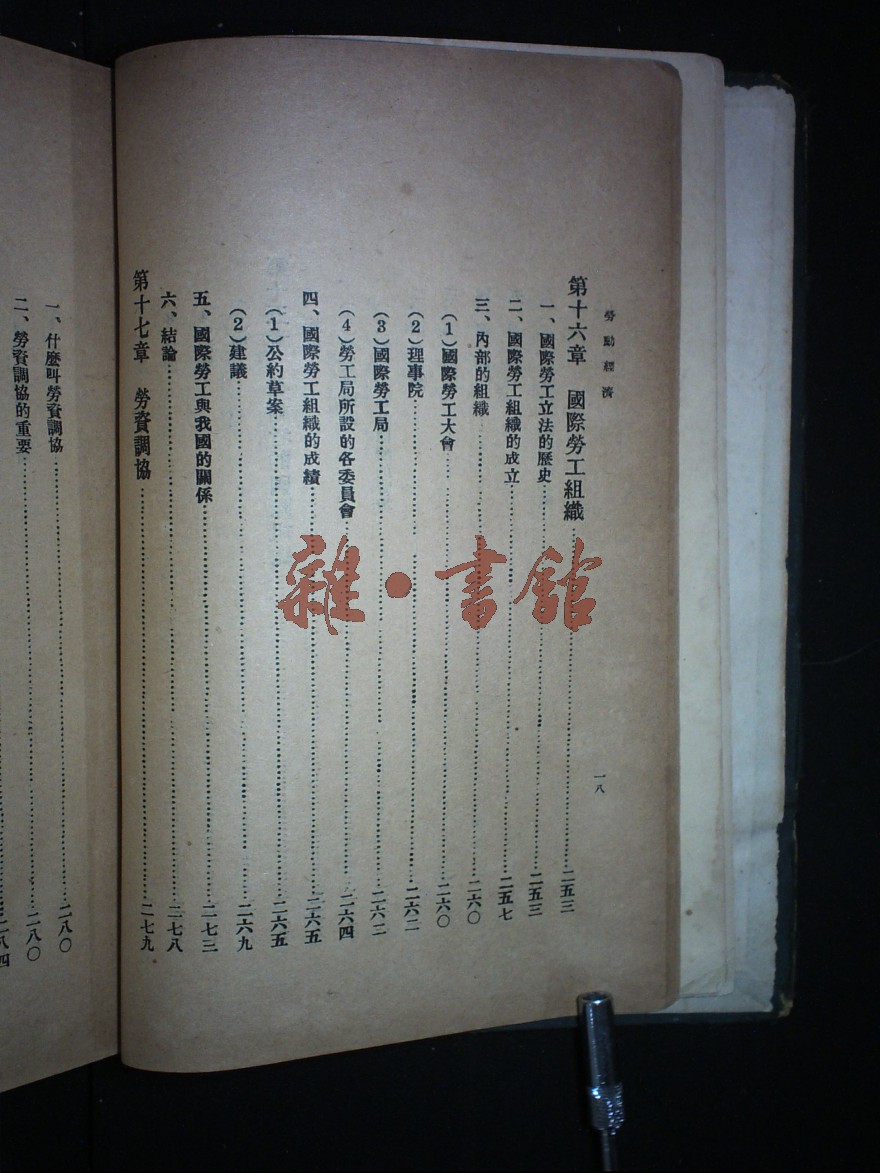 勞動經濟
一八
第十六章　國際勞工組織……二五三
一、國際勞工立法的歷史……二五三
二、國際勞工組織的成立……二五七
三、內部的組織……二六〇
(1)國際勞工大會……二六〇
(2)理事院……二六二
(3)國際勞工局……二六三
(4)勞工局所設的各委員會……二六四
四、國際勞工組織的成績……二六五
(1)公約草案……二六五
(2)建議……二六九
五、國際勞工與我國的關係……二七三
六、結論……二七八
第十七章　勞資調協……二七九
一、什麼叫勞資調協……二八〇
二、勞資調協的重要……二八〇
二八四
雜·書館